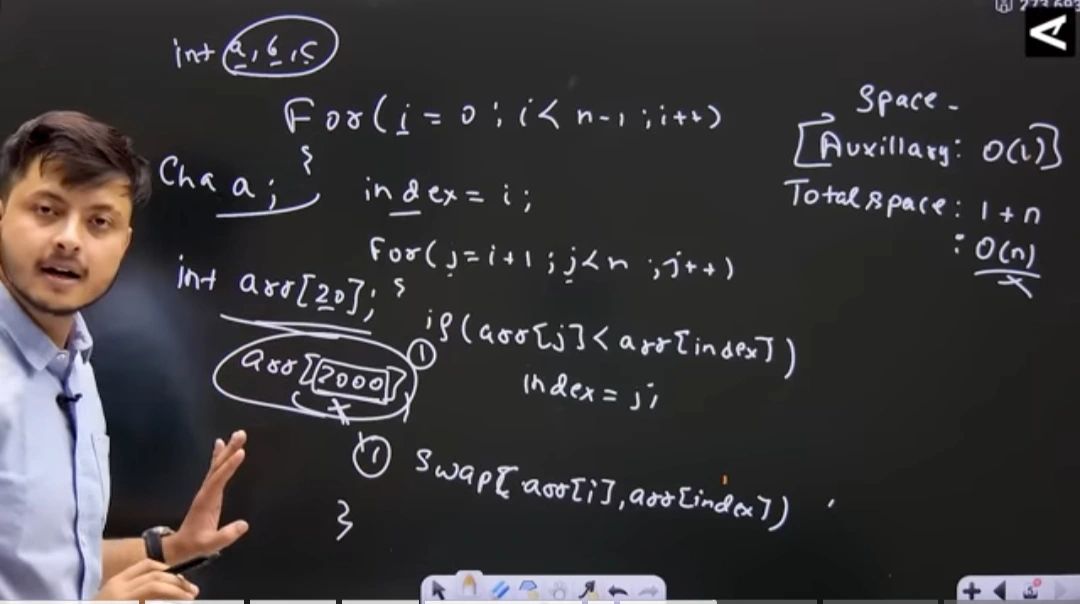 int a, b, c
For(i = 0; i < n-1; i++)
{
Cha a;
index = i;
For(j = i+1; j < n; j++)
int arr[20]; {
if(arr[j] < arr[index])
1
arr[2000]
index = j;
1 swap[arr[i], arr[index])
}
Space -
[Auxillary: O(1)]
Total space: 1 + n
: O(n)